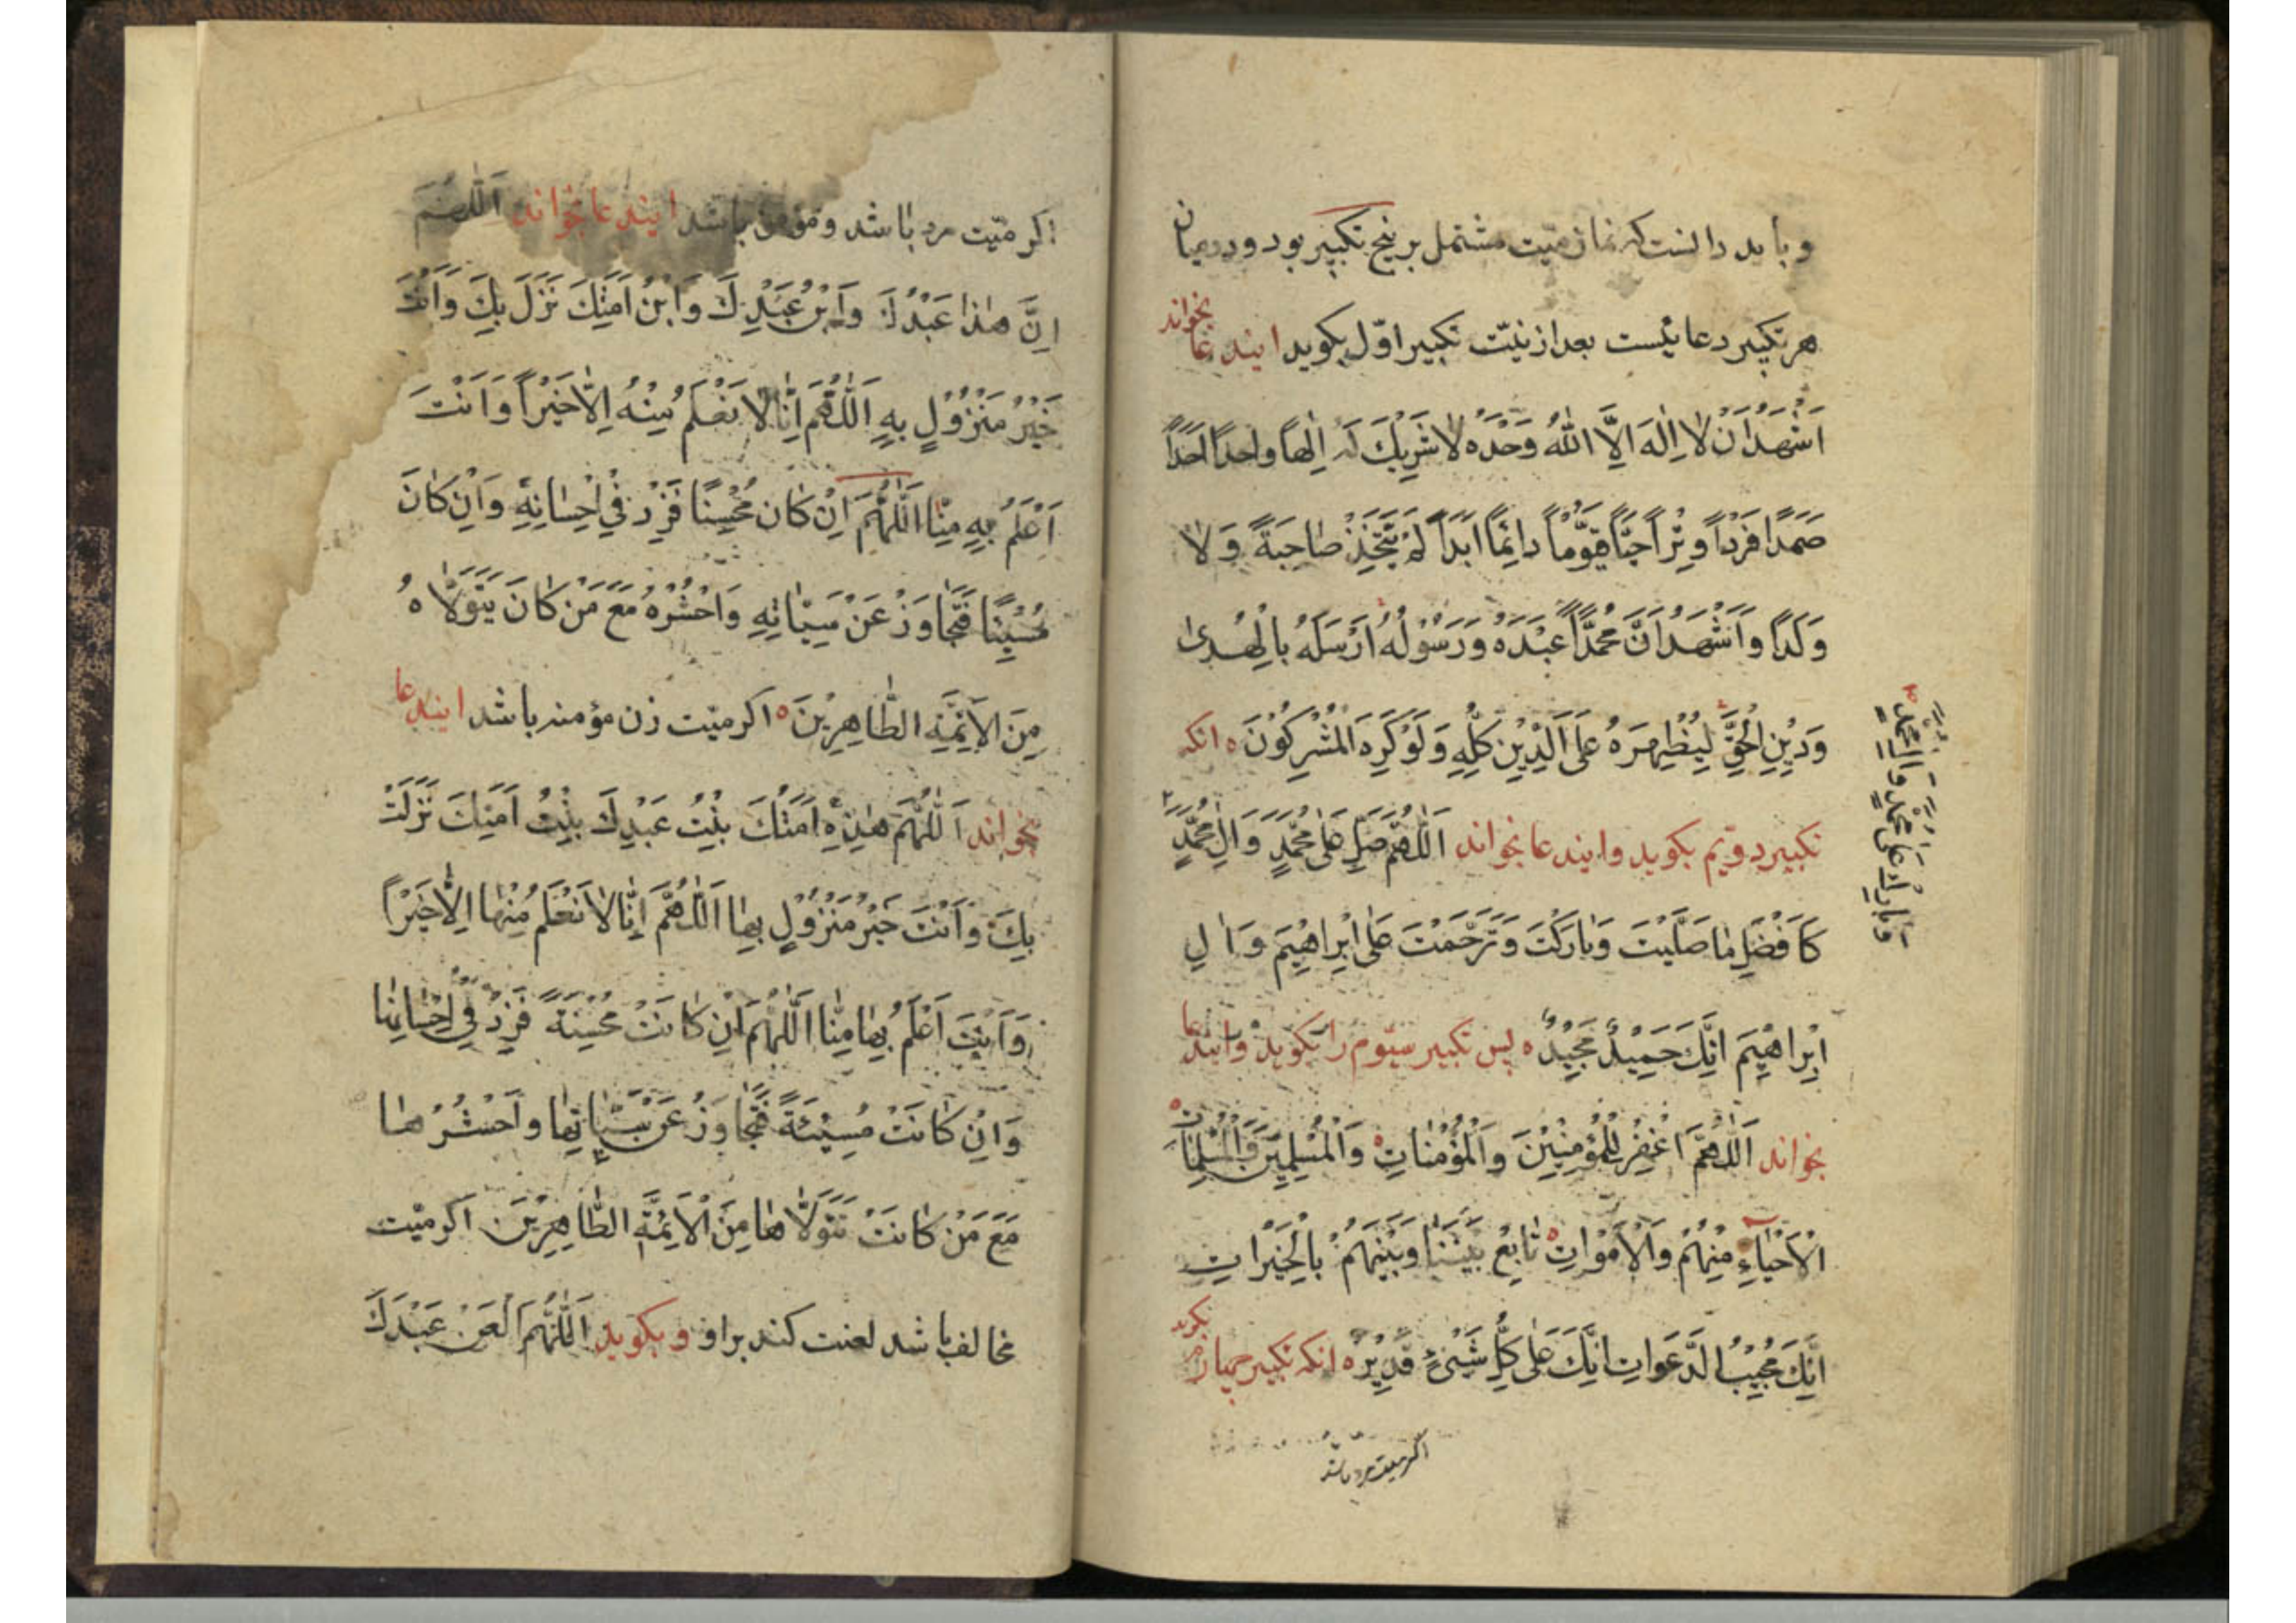 و بايد دانست كه نماز ميّت مشتمل بر پنج تكبير بود و در ميان
هر تكبير دعائيست بعد از نيّت تكبير اوّل بكويد ايندعا بخواند
اَشْهَدُ اَنْ لا اِلٰهَ اِلَّا اللّٰهُ وَحْدَه لا شَرِيكَ لَهُ اِلٰهاً واحداً اَحَداً
صَمَداً فَرْداً وِتْراً حَيّاً قَيُّوماً دائِماً اَبَداً لَمْ يَتَّخِذْ صاحِبَةً وَلا
وَلَداً وَاَشْهَدُ اَنَّ مُحَمَّداً عَبْدُهُ وَرَسُولُهُ اَرْسَلَهُ بِالْهُدىٰ
وَدِيْنِ الْحَقِّ لِيُظْهِرَهُ عَلَى الدِّيْنِ كُلِّهِ وَلَوْ كَرِهَ الْمُشْرِكُوْنَ ه انكه
تكبير دويّم بكويد و ايندعا بخواند اَللّٰهُمَّ صَلِّ عَلىٰ مُحَمَّدٍ وَاٰلِ مُحَمَّدٍ
وَبارِكْ عَلىٰ مُحَمَّدٍ وَاٰلِ مُحَمَّدٍ
كَاَفْضَلِ ما صَلَّيْتَ وَبارَكْتَ وَتَرَحَّمْتَ عَلىٰ اِبْراهِيْمَ وَاٰلِ
اِبْراهِيْمَ اِنَّكَ حَمِيْدٌ مَجِيْدٌ ه پس تكبير سيّوم را بكويد و ايندعا
بخواند اَللّٰهُمَّ اغْفِرْ لِلْمُؤْمِنِيْنَ وَالْمُؤْمِناتِ وَالْمُسْلِمِيْنَ وَالْمُسْلِماتِ
الْاَحْياءِ مِنْهُمْ وَالْاَمْواتِ تابِعْ بَيْنَنا وَبَيْنَهُمْ بِالْخَيْراتِ
اِنَّكَ مُجِيْبُ الدَّعَواتِ اِنَّكَ عَلىٰ كُلِّ شَيْءٍ قَدِيْرٌ ه انكه تكبير چهارم بكويد
اكر ميت مرد باشد
اكر ميّت مرد باشد و مؤمن باشد ايندعا بخواند اَللّٰهُمَّ
اِنَّ هٰذا عَبْدُكَ وَابْنُ عَبْدِكَ وَابْنُ اَمَتِكَ نَزَلَ بِكَ وَاَنْتَ
خَيْرُ مَنْزُوْلٍ بِهِ اَللّٰهُمَّ اِنّا لا نَعْلَمُ مِنْهُ اِلّا خَيْراً وَاَنْتَ
اَعْلَمُ بِهِ مِنّا اَللّٰهُمَّ اِنْ كانَ مُحْسِنًا فَزِدْ فِيْ اِحْسانِهِ وَاِنْ كانَ
مُسِيْئًا فَتَجاوَزْ عَنْ سَيِّئاتِهِ وَاحْشُرْهُ مَعَ مَنْ كانَ يَتَوَلّاهُ
مِنَ الْاَئِمَّةِ الطّاهِرِيْنَ ه اكر ميّت زن مؤمنه باشد ايندعا
بخواند اَللّٰهُمَّ هٰذِهِ اَمَتُكَ بِنْتُ عَبْدِكَ بِنْتُ اَمَتِكَ نَزَلَتْ
بِكَ وَاَنْتَ خَيْرُ مَنْزُوْلٍ بِها اَللّٰهُمَّ اِنّا لا نَعْلَمُ مِنْها اِلّا خَيْراً
وَاَنْتَ اَعْلَمُ بِها مِنّا اَللّٰهُمَّ اِنْ كانَتْ مُحْسِنَةً فَزِدْ فِيْ اِحْسانِها
وَاِنْ كانَتْ مُسِيْئَةً فَتَجاوَزْ عَنْ سَيِّئاتِها وَاحْشُرْها
مَعَ مَنْ كانَتْ تَتَوَلّاها مِنَ الْاَئِمَّةِ الطّاهِرِيْنَ اكر ميّت
مخالف باشد لعنت كند بر او و بكويد اَللّٰهُمَّ الْعَنْ عَبْدَكَ